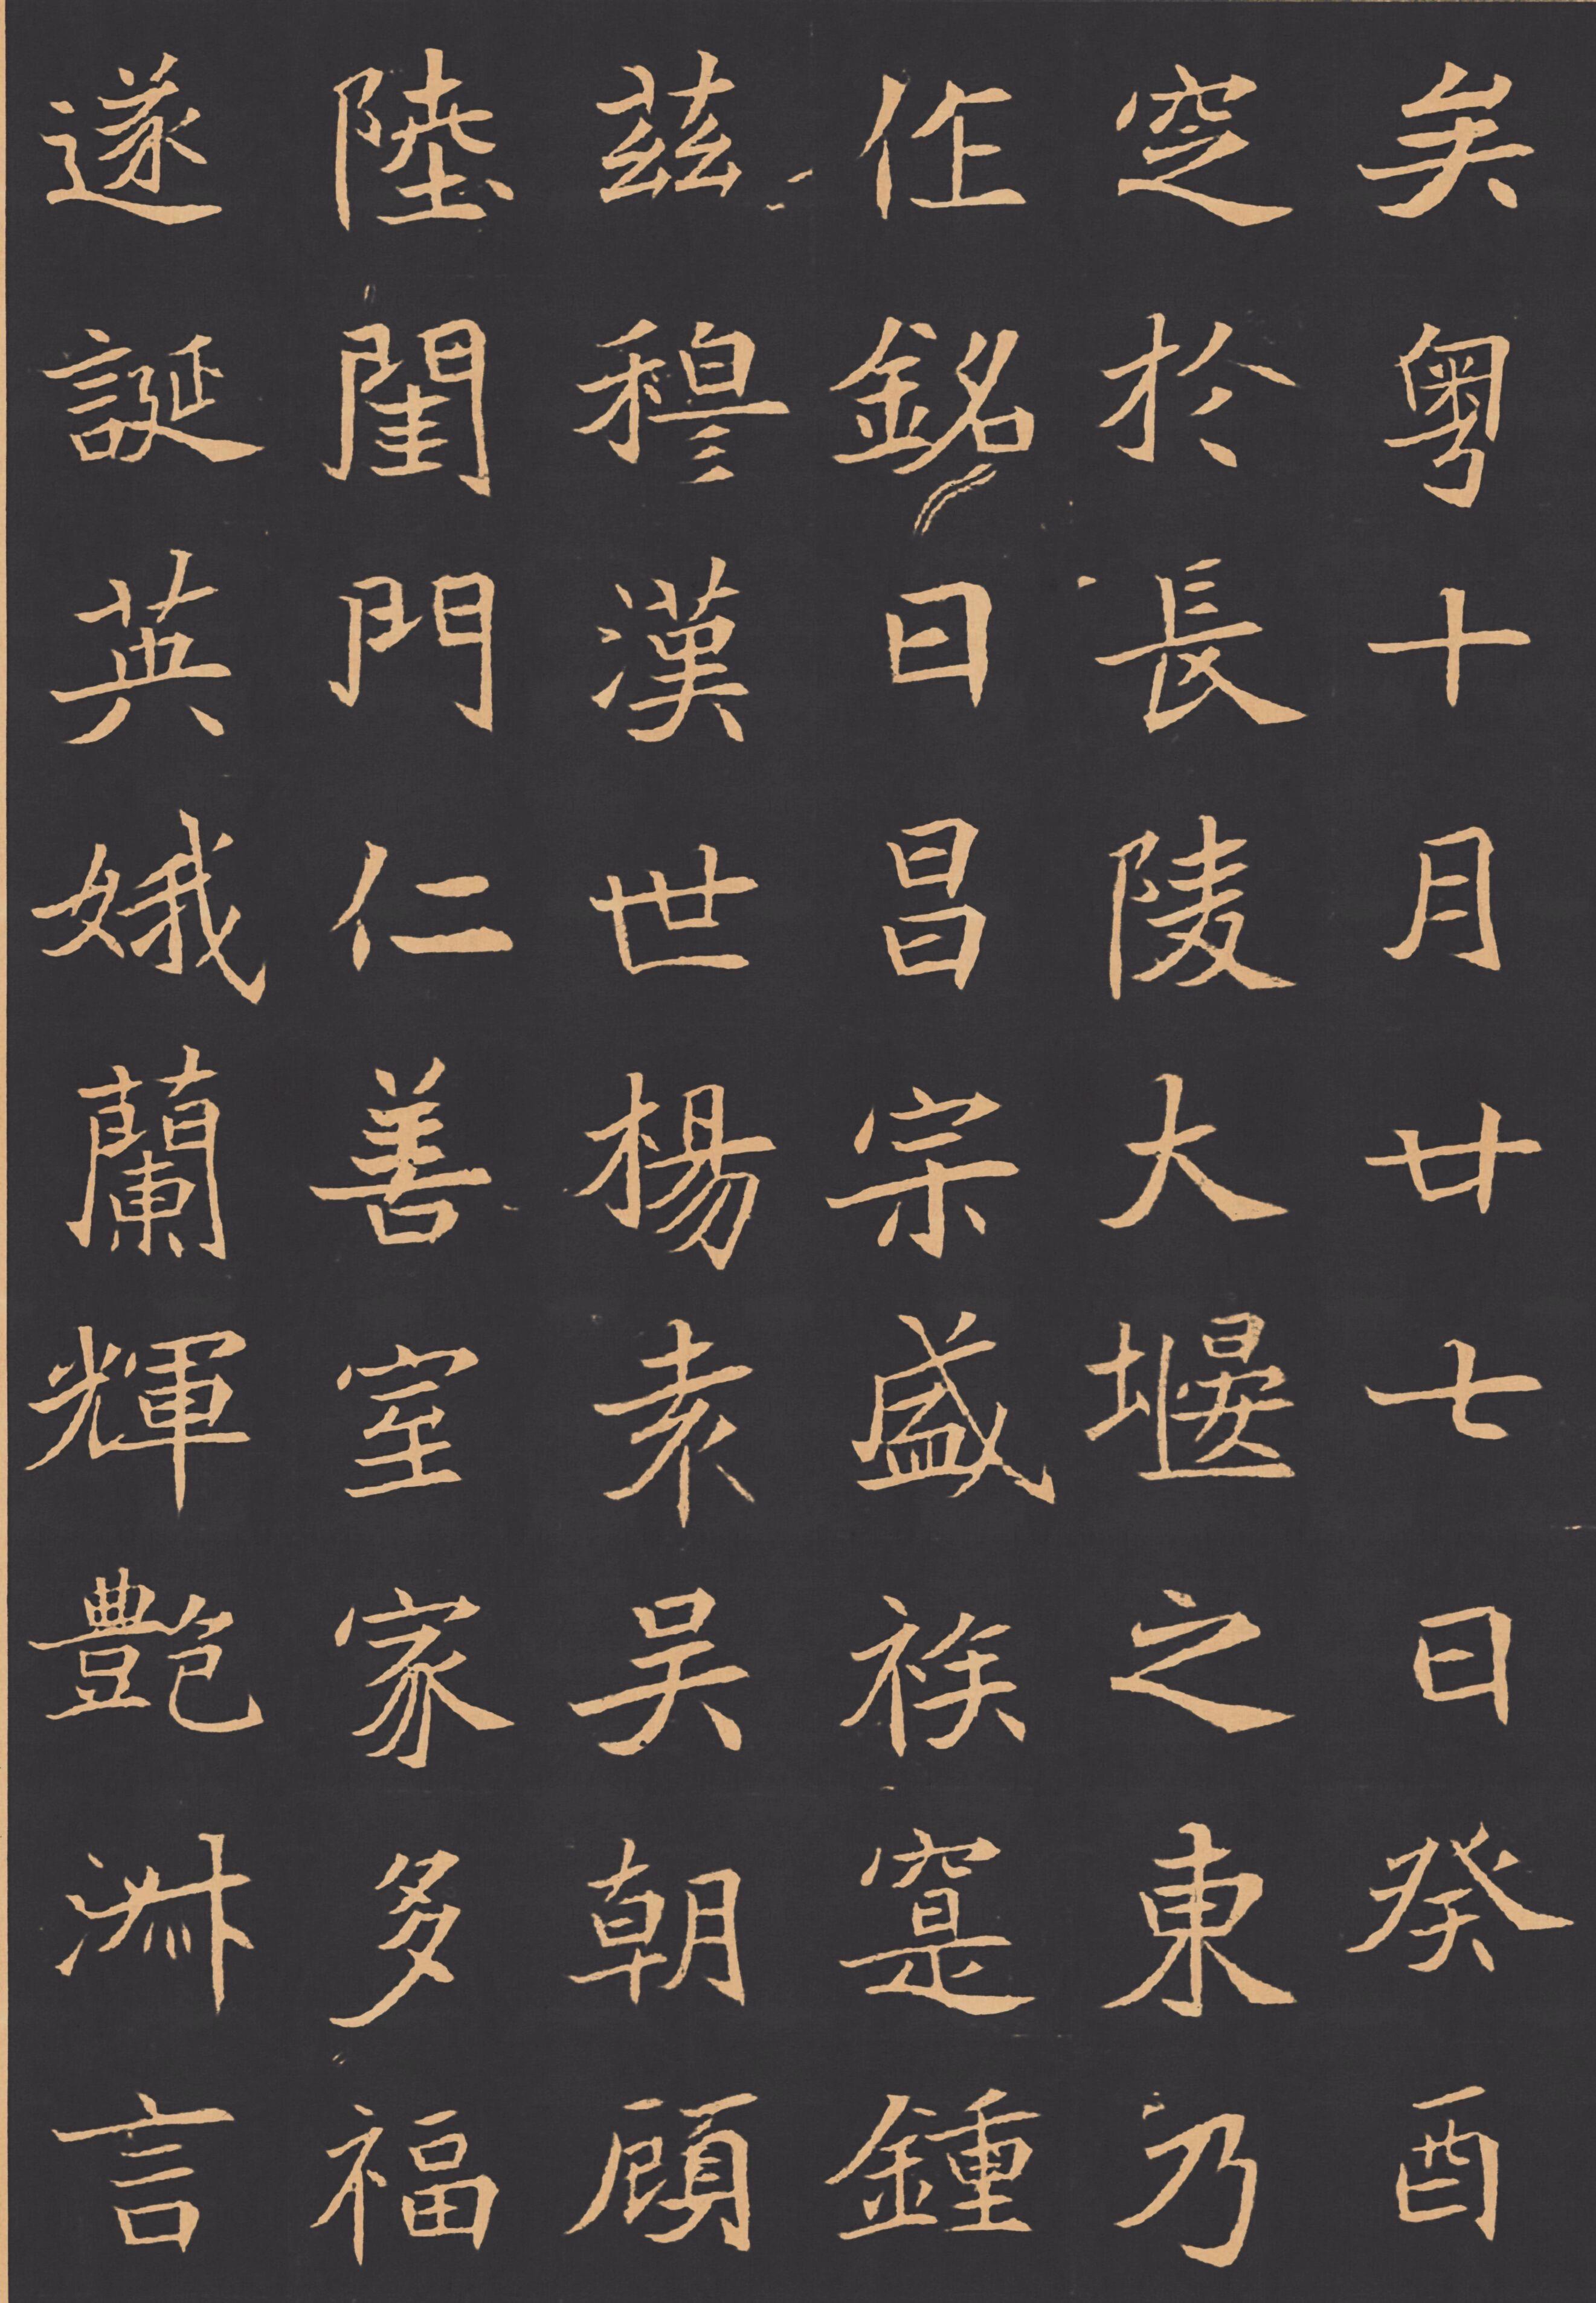 矣粤十月廿七日癸酉
窆於長陵大堰之東乃
作銘曰昌宗盛族寔鍾
兹穆漢世楊袁吴朝顧
陸閨門仁善室家多福
遂誕英娥蘭輝艷淑言